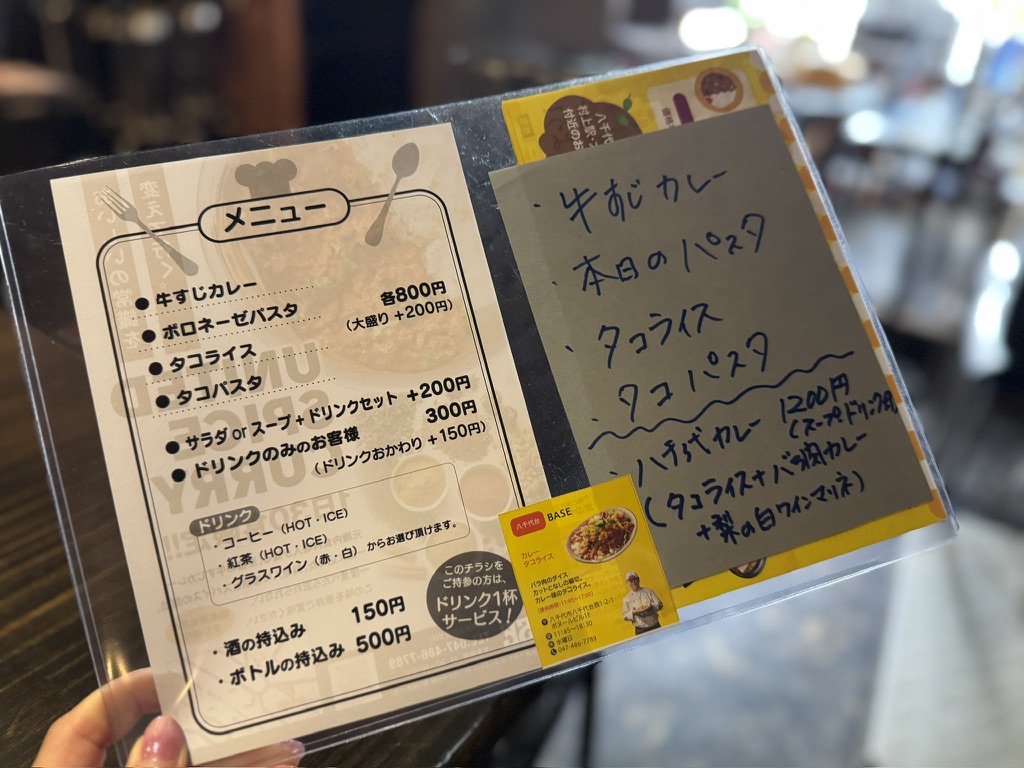 メニュー
● 牛すじカレー
● ボロネーゼパスタ
各800円
(大盛り +200円)
● タコライス
● タコパスタ
● サラダ or スープ + ドリンクセット +200円
● ドリンクのみのお客様 300円
(ドリンクおかわり +150円)
ドリンク
・コーヒー (HOT・ICE)
・紅茶 (HOT・ICE)
・グラスワイン (赤・白) からお選び頂けます。
このチラシを
ご持参の方は、
ドリンク1杯
サービス!
・酒の持込み 150円
・ボトルの持込み 500円
UNITED
SPICE
CURRY
047-486-7789
八千代
村上駅
付近のお
・牛すじカレー
・本日のパスタ
・タコライス
・タコパスタ
・八千代カレー 1200円
(スープドリンク付)
(タコライス+バラ肉カレー
+梨の白ワインマリネ)
八千代台 BASE
カレー
タコライス
バラ肉のダイス
カットとなしの細切。
カレー味のタコライス。
(提供時間:11:45〜17:00)
八千代市八千代台西1-2-1
11:45〜18:30
水曜日
047-486-7789